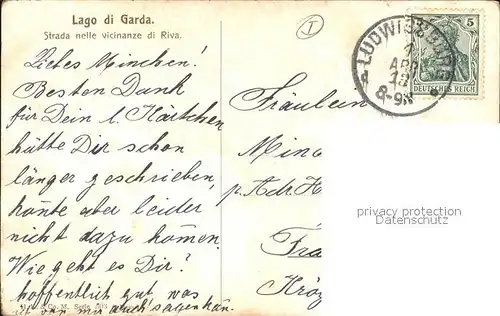 Lago di Garda.
Strada nelle vicinanze di Riva.
Liebes Minchen!
Besten Dank
für Dein l. Kärtchen
hätte Dir schon
länger geschrieben,
konnte aber leider
nicht dazu kommen.
Wie geht es Dir?
hoffentlich gut, was
ich von mir auch sagen kan.
Fräulein
Min
p. Adr. H
Fra
LUDWIGSBURG
1
APR
12
8-9N
5
DEUTSCHES REICH
privacy protection
Datenschutz